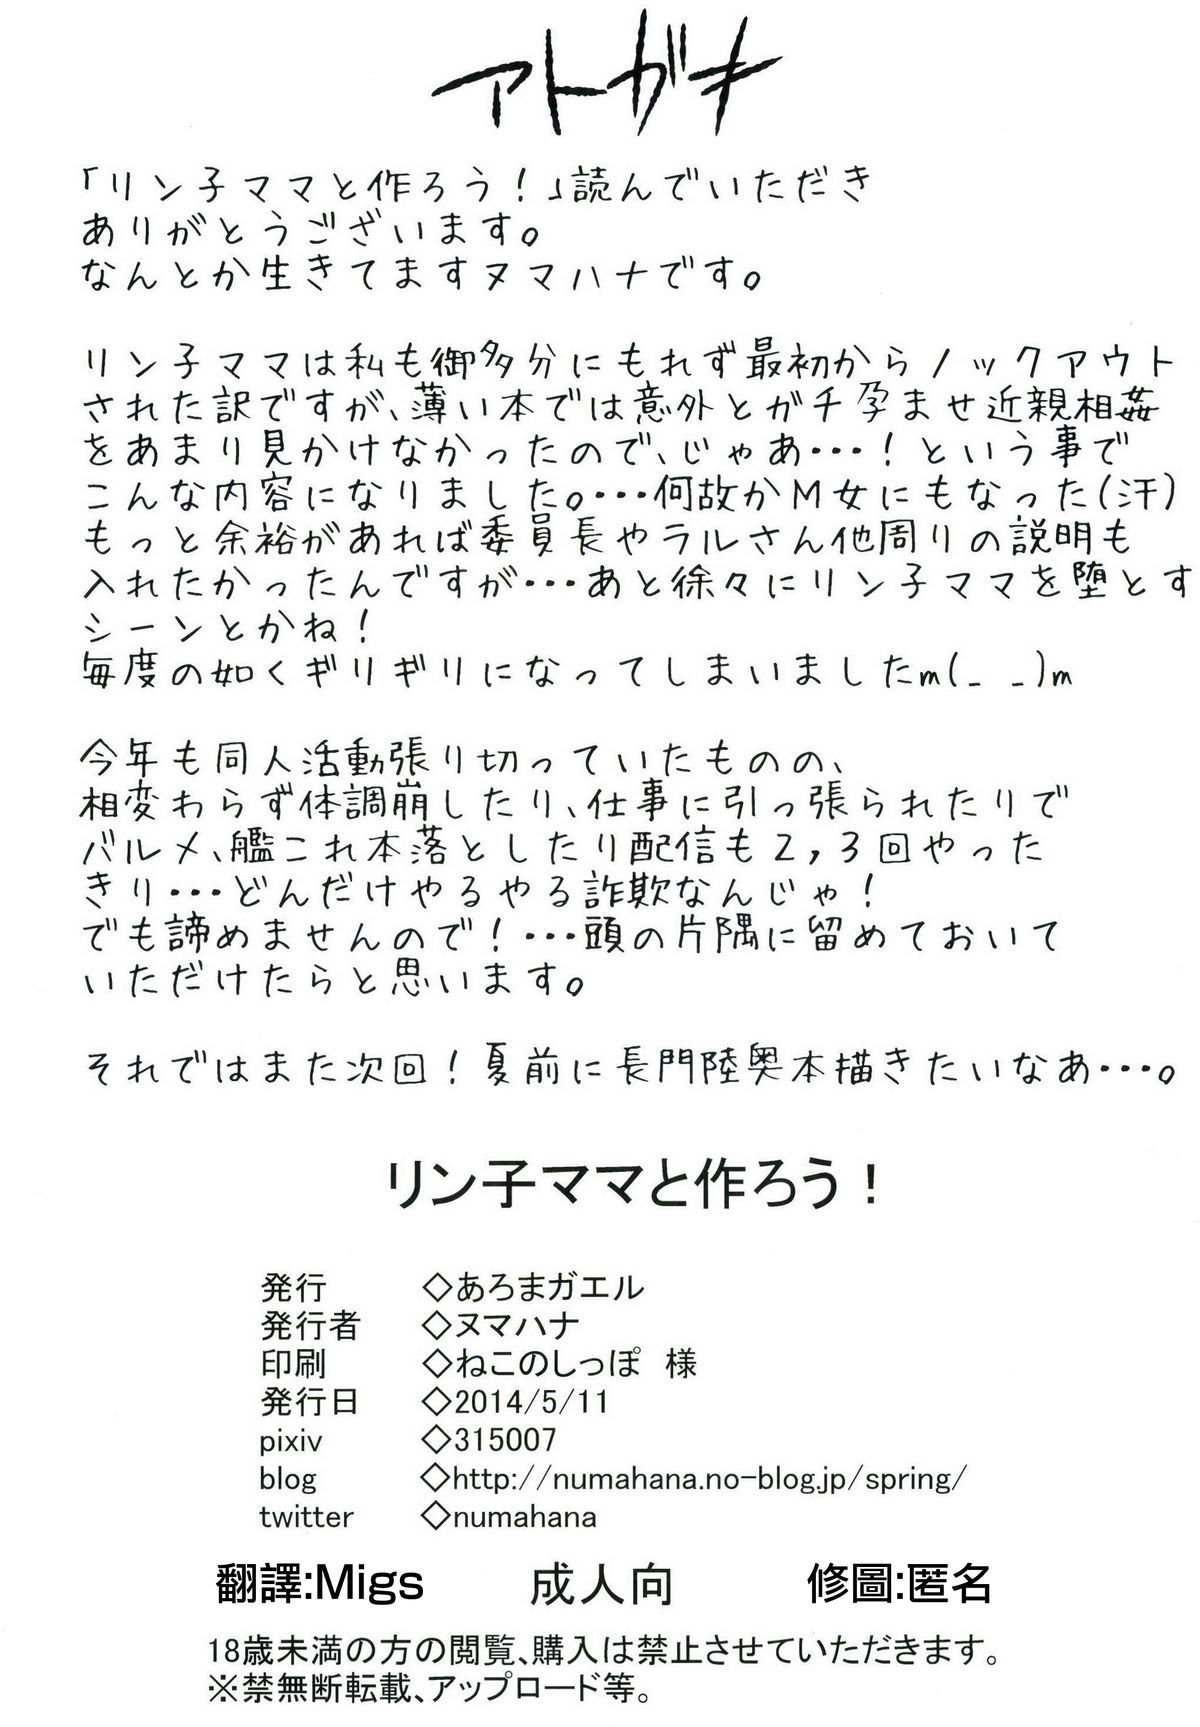 アトガキ
「リン子ママと作ろう！」読んでいただき
ありがとうございます。
なんとか生きてますヌマハナです。
リン子ママは私も御多分にもれず最初からノックアウト
された訳ですが、薄い本では意外とガチ孕ませ近親相姦
をあまり見かけなかったので、じゃあ・・・！という事で
こんな内容になりました。・・・何故かM女にもなった(汗)
もっと余裕があれば委員長やラルさん他周りの説明も
入れたかったんですが・・・あと徐々にリン子ママを堕とす
シーンとかね！
毎度の如くギリギリになってしまいましたm(_ _)m
今年も同人活動張り切っていたものの、
相変わらず体調崩したり、仕事に引っ張られたりで
バルメ、艦これ本落としたり配信も2,3回やった
きり・・・どんだけやるやる詐欺なんじゃ！
でも諦めませんので！・・・頭の片隅に留めておいて
いただけたらと思います。
それではまた次回！夏前に長門陸奥本描きたいなあ・・・。
リン子ママと作ろう！
発行 ◇あろまガエル
発行者 ◇ヌマハナ
印刷 ◇ねこのしっぽ 様
発行日 ◇2014/5/11
pixiv ◇315007
blog ◇http://numahana.no-blog.jp/spring/
twitter ◇numahana
翻譯:Migs 成人向 修圖:匿名
18歳未満の方の閲覧、購入は禁止させていただきます。
※禁無断転載、アップロード等。